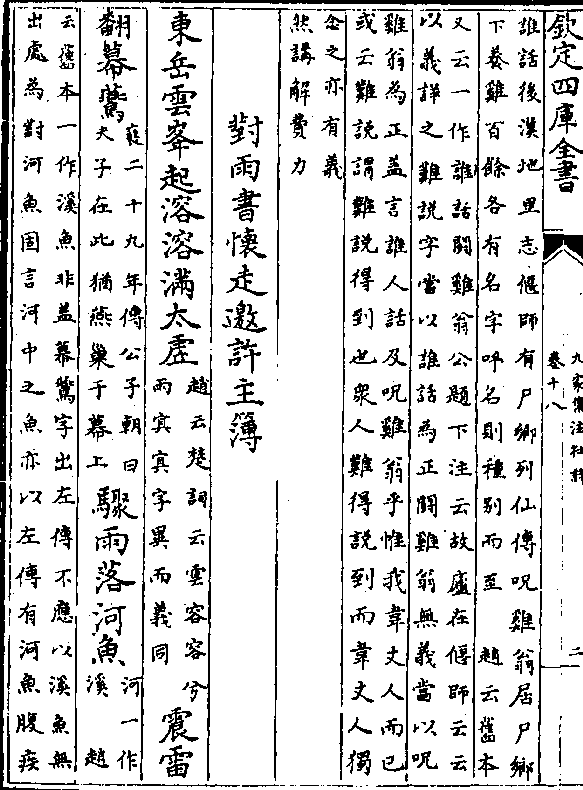 欽定四庫全書
九家集注杜詩
卷十八
二
誰話後漢地里志偃師有尸鄉列仙傳呪雞翁居尸鄉
下養雞百餘各有名字呼名則種別而至　趙云舊本
又云一作誰話鬭雞翁公題下注云故廬在偃師云云
以義詳之難説字當以誰話為正鬭雞翁無義當以呪
雞翁為正蓋言誰人話及呪雞翁乎惟我韋丈人而已
或云難説謂難説得到也衆人難得説到而韋丈人獨
念之亦有義
然講解費力
對雨書懷走邀許主簿
東岳雲峯起溶溶滿太虛
趙云楚詞云雲容容兮
而㝠㝠字異而義同
震雷
翻幕鷰
襄二十九年傳公子朝曰
夫子在此猶燕巢于幕上
驟雨落河魚
河一作
溪　趙
云舊本一作溪魚非蓋幕鷰字出左傳不應以溪魚無
出處為對河魚固言河中之魚亦以左傳有河魚腹疾